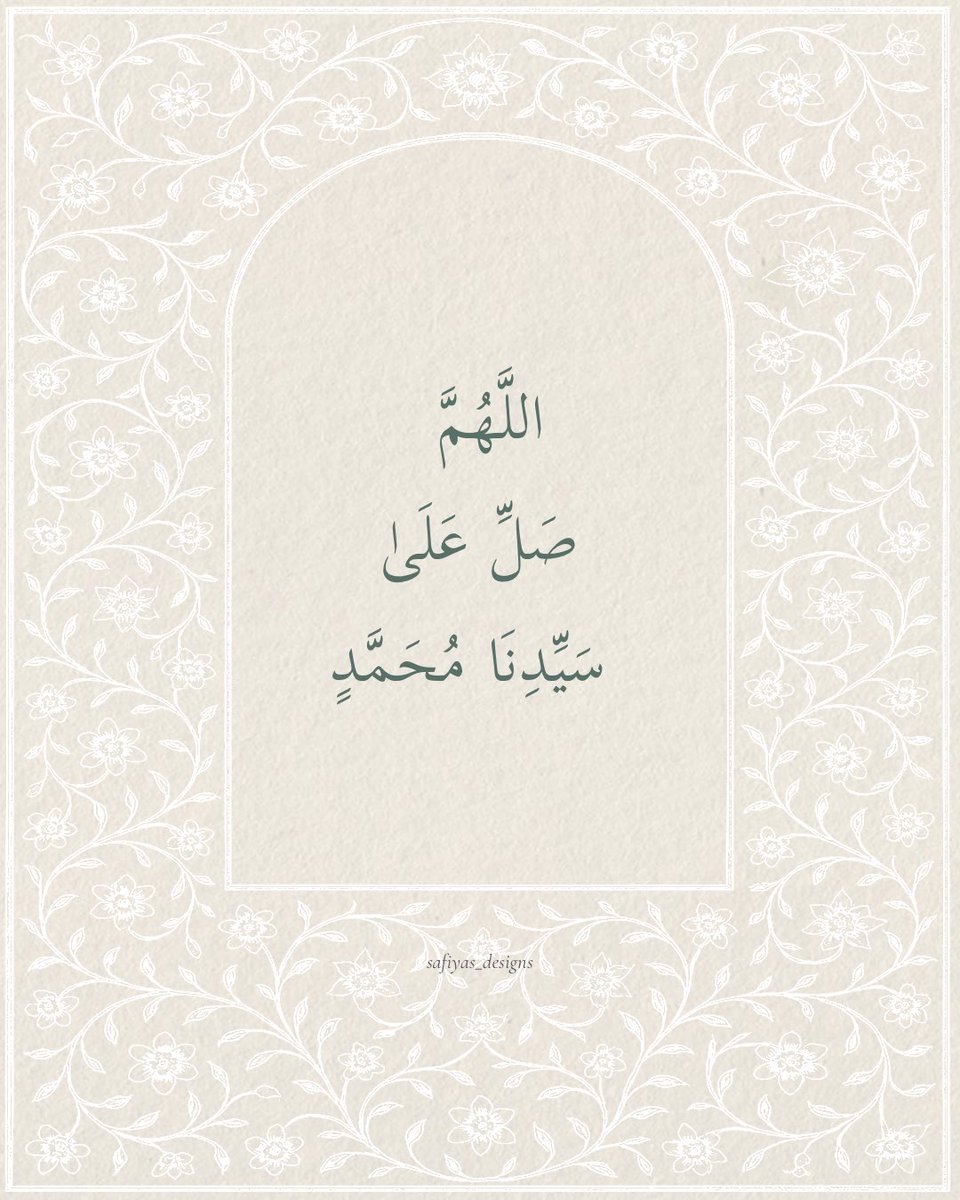 اللَّهُمَّ
صَلِّ عَلَىٰ
سَيِّدِنَا مُحَمَّدٍ
safiyas_designs